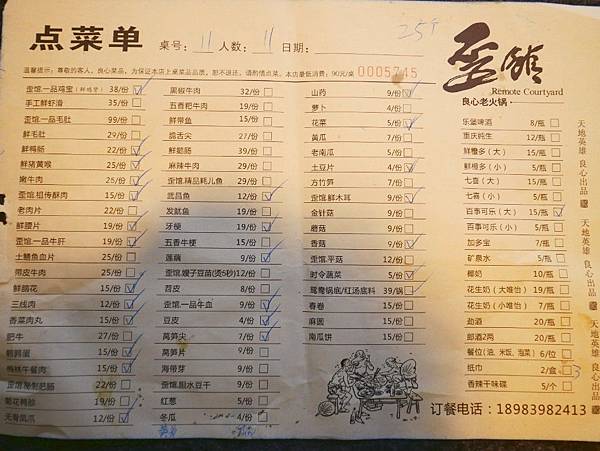 点菜单 桌号: 11 人数: 11 日期:
25个
温馨提示：尊敬的客人，良心菜品，为保证本店上桌菜品品质，恕不退还，请酌情点菜。本店最低消费：90元/桌 0005745
歪馆
Remote Courtyard
良心老火锅·
歪馆.一品鸡宝(鲜鸡肾) 38/份
手工鲜虾滑 35/份
歪馆.一品毛肚 99/份
鲜毛肚 29/份
鲜鸭肠 22/份
鲜猪黄喉 25/份
嫩牛肉 26/份
歪馆.祖传酥肉 15/份
老肉片 22/份
鲜腰片 19/份
歪馆.一品牛肝 19/份
土鳝鱼血片 25/份
带皮牛肉 25/份
鲜脑花 15/份
三线肉 12/份
香菜肉丸 15/份
肥牛 27/份
鹌鹑蛋 15/份
梅林午餐肉 15/份
歪馆秘制肥肠 22/份
菊花鸭胗 22/份
无骨凤爪 12/份
黑椒牛肉 32/份
五香粑牛肉 19/份
鲜带鱼 15/份
脆舌尖 27/份
鲜鹅肠 39/份
麻辣牛肉 29/份
歪馆.精品耗儿鱼 29/份
武昌鱼 12/份
发鱿鱼 19/份
牙梗 19/份
五香牛梗 15/份
莲藕 9/份
歪馆.嫂子豆苗(烫5秒) 12/份
苕皮 9/份
歪馆.一品牛血 9/份
豆皮 4/份
莴笋尖 7/份
莴笋片 9/份
海带芽 9/份
歪馆.胆水豆干 9/份
红葱 5/份
冬瓜 4/份
山药 9/份
萝卜 4/份
花菜 5/份
黄瓜 7/份
老南瓜 5/份
土豆片 4/份
方竹笋 7/份
歪馆.鲜木耳 9/份
金针菇 9/份
蘑菇 9/份
香菇 9/份
歪馆.平菇 12/份
时令蔬菜 5/份
鸳鸯锅底/红汤底料 39/锅
春卷 15/份
麻圆 15/份
南瓜饼 15/份
乐堡啤酒 8/瓶
重庆纯生 12/瓶
鲜橙多（大） 15/瓶
鲜橙多（小） 5/瓶
七喜（大） 15/瓶
七喜（小） 5/瓶
百事可乐（大） 15/瓶
百事可乐（小） 5/瓶
加多宝 7/瓶
矿泉水 5/瓶
椰奶 10/瓶
花生奶（大唯怡） 19/瓶
花生奶（小唯怡） 7/瓶
劲酒 20/瓶
郎酒2两 20/瓶
餐位(油、米饭、泡菜) 6/位
纸巾 2/盒 3
香辣干味碟 5/个
天地英雄 良心出品
天地英雄 良心出品
天地英雄
订餐电话：18983982413